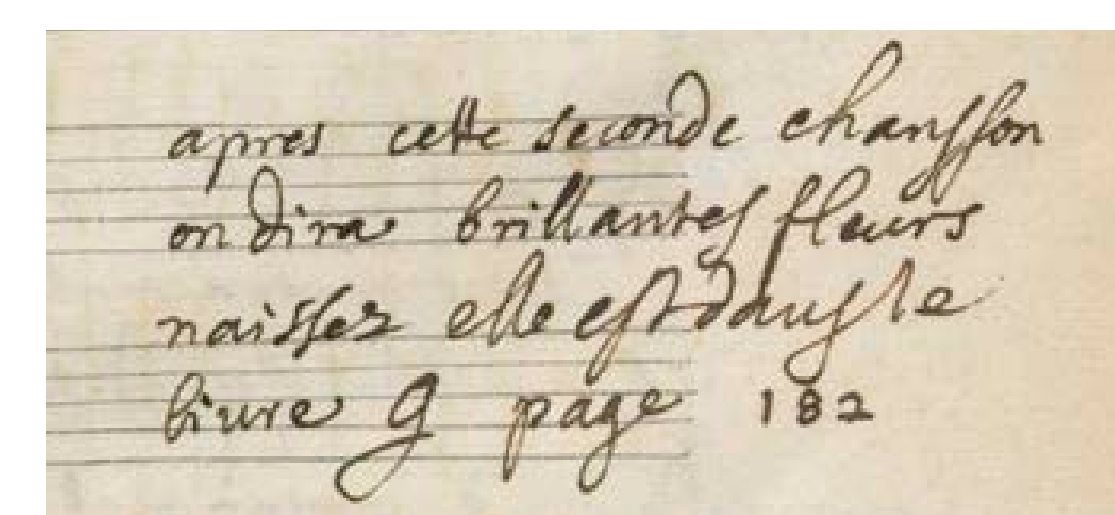 apres cette seconde chansson
on dira brillantes fleurs
naissez elle est dans le
livre g page 182